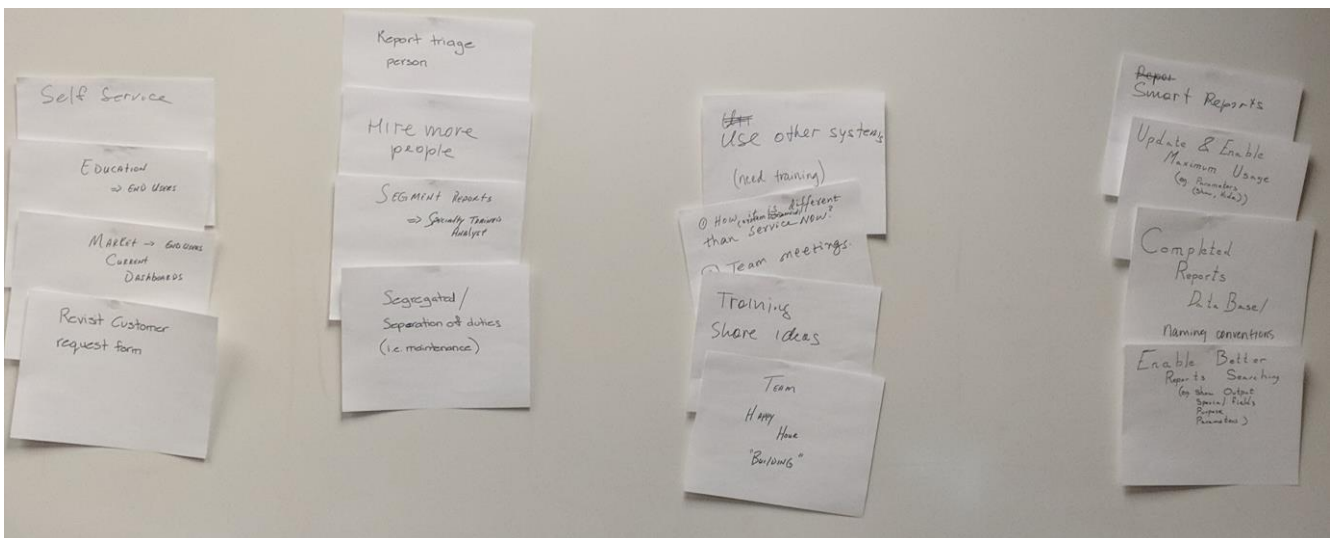 Self Service
EDUCATION
⇒ END USERS
MARKET → END USERS
CURRENT
DASHBOARDS
Revisit Customer
request form
Report triage
person
Hire more
people
SEGMENT REPORTS
⇒ SPECIALLY TRAINED
ANALYST
Segregated/
Separation of duties
(i.e. maintenance)
Use other systems
(need training)
① How is different
than service NOW?
Team meetings.
Training
Share ideas
TEAM
HAPPY
HOUR
"BUILDING"
Repor
Smart Reports
Update & Enable
Maximum Usage
(eg Parameters
(Show, Hide))
Completed
Reports
DataBase/
Naming conventions
Enable Better
Reports Searching
(eg Show Output
Special Fields
Purpose
Parameters)